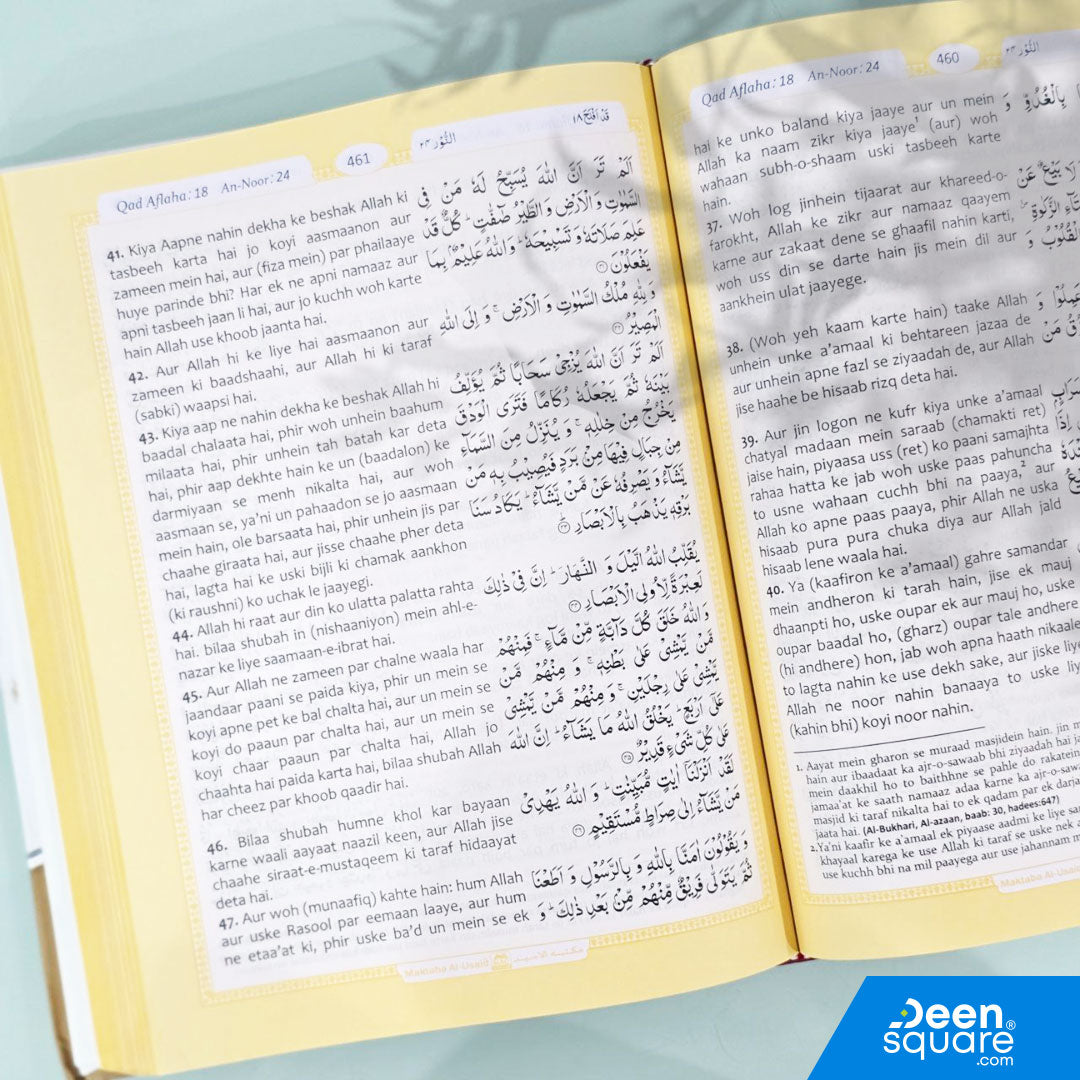 Qad Aflaha: 18 An-Noor: 24
460
النُّوْر ٢٤
hai ke unko baland kiya jaaye aur un mein
Allah ka naam zikr kiya jaaye¹ (aur) woh
wahaan subh-o-shaam uski tasbeeh karte
hain.
بِالْغُدُوِّ وَ
37. Woh log jinhein tijaarat aur khareed-o-
farokht, Allah ke zikr aur namaaz qaayem
karne aur zakaat dene se ghaafil nahin karti,
woh uss din se darte hain jis mein dil aur
aankhein ulat jaayege.
لَا بَيْعٌ عَنْ
الزَّكٰوةِ
الْقُلُوْبُ وَ
38. (Woh yeh kaam karte hain) taake Allah
unhein unke a'amaal ki behtareen jazaa de
aur unhein apne fazl se ziyaadah de, aur Allah
jise haahe be hisaab rizq deta hai.
عَمِلُوْا وَ
39. Aur jin logon ne kufr kiya unke a'amaal
chatyal madaan mein saraab (chamakti ret)
jaise hain, piyaasa uss (ret) ko paani samajhta
rahaa hatta ke jab woh uske paas pahuncha
to usne wahaan cuchh bhi na paaya,² aur
Allah ko apne paas paaya, phir Allah ne uska
hisaab pura pura chuka diya aur Allah jald
hisaab lene waala hai.
40. Ya (kaafiron ke a'amaal) gahre samandar
mein andheron ki tarah hain, jise ek mauj
dhaanpti ho, uske oupar ek aur mauj ho, uske
oupar baadal ho, (gharz) oupar tale andhere
(hi andhere) hon, jab woh apna haath nikaale
to lagta nahin ke use dekh sake, aur jiske liye
Allah ne noor nahin banaaya to uske liye
(kahin bhi) koyi noor nahin.
1. Aayat mein gharon se muraad masjidein hain. jin m
hain aur ibaadaat ka ajr-o-sawaab bhi ziyaadah hai ja
mein daakhil ho to baithhne se pahle do rakatein
jamaa'at ke saath namaaz adaa karne ka ajr-o-sawa
masjid ki taraf nikalta hai to ek qadam par ek darja
jaata hai. (Al-Bukhari, Al-azaan, baab: 30, hadees:647)
2.Ya'ni kaafir ke a'amaal ek piyaase aadmi ke liye sa
khayaal karega ke use Allah ki taraf se uske nek a
use kuchh bhi na mil paayega aur use jahannam m
Maktaba Al-Usaid
Qad Aflaha: 18 An-Noor: 24
461
النُّوْر ٢٤
قَدْ اَفْلَحَ ١٨
41. Kiya Aapne nahin dekha ke beshak Allah ki
tasbeeh karta hai jo koyi aasmaanon aur
zameen mein hai, aur (fiza mein) par phailaaye
huye parinde bhi? Har ek ne apni namaaz aur
apni tasbeeh jaan li hai, aur jo kuchh woh karte
hain Allah use khoob jaanta hai.
اَلَمْ تَرَ اَنَّ اللّٰهَ يُسَبِّحُ لَهٗ مَنْ فِى
السَّمٰوٰتِ وَ الْاَرْضِ وَ الطَّيْرُ صٰٓفّٰتٍ ؕ كُلٌّ قَدْ
عَلِمَ صَلَاتَهٗ وَ تَسْبِيْحَهٗ ؕ وَ اللّٰهُ عَلِيْمٌۢ بِمَا
يَفْعَلُوْنَ ۴۱
42. Aur Allah hi ke liye hai aasmaanon aur
zameen ki baadshaahi, aur Allah hi ki taraf
(sabki) waapsi hai.
وَ لِلّٰهِ مُلْكُ السَّمٰوٰتِ وَ الْاَرْضِ ۚ وَ اِلَى اللّٰهِ
الْمَصِيْرُ ۴۲
43. Kiya aap ne nahin dekha ke beshak Allah hi
baadal chalaata hai, phir woh unhein baahum
milaata hai, phir unhein tah batah kar deta
hai, phir aap dekhte hain ke un (baadalon) ke
darmiyaan se menh nikalta hai, aur woh
aasmaan se, ya'ni un pahaadon se jo aasmaan
mein hain, ole barsaata hai, phir unhein jis par
chaahe giraata hai, aur jisse chaahe pher deta
hai, lagta hai ke uski bijli ki chamak aankhon
(ki raushni) ko uchak le jaayegi.
اَلَمْ تَرَ اَنَّ اللّٰهَ يُزْجِىْ سَحَابًا ثُمَّ يُؤَلِّفُ
بَيْنَهٗ ثُمَّ يَجْعَلُهٗ رُكَامًا فَتَرَى الْوَدْقَ
يَخْرُجُ مِنْ خِلٰلِهٖ ۚ وَ يُنَزِّلُ مِنَ السَّمَآءِ
مِنْ جِبَالٍ فِيْهَا مِنْۢ بَرَدٍ فَيُصِيْبُ بِهٖ مَنْ
يَّشَآءُ وَ يَصْرِفُهٗ عَنْ مَّنْ يَّشَآءُ ؕ يَكَادُ سَنَا
بَرْقِهٖ يَذْهَبُ بِالْاَبْصَارِ ۴۳
44. Allah hi raat aur din ko ulatta palatta rahta
hai. bilaa shubah in (nishaaniyon) mein ahl-e-
nazar ke liye saamaan-e-ibrat hai.
يُقَلِّبُ اللّٰهُ الَّيْلَ وَ النَّهَارَ ؕ اِنَّ فِىْ ذٰلِكَ
لَعِبْرَةً لِّاُولِى الْاَبْصَارِ ۴۴
45. Aur Allah ne zameen par chalne waala har
jaandaar paani se paida kiya, phir un mein se
koyi apne pet ke bal chalta hai, aur un mein se
koyi do paaun par chalta hai, aur un mein se
koyi chaar paaun par chalta hai, Allah jo
chaahta hai paida karta hai, bilaa shubah Allah
har cheez par khoob qaadir hai.
وَ اللّٰهُ خَلَقَ كُلَّ دَآبَّةٍ مِّنْ مَّآءٍ ۚ فَمِنْهُمْ
مَّنْ يَّمْشِىْ عَلٰى بَطْنِهٖ ۚ وَ مِنْهُمْ مَّنْ
يَّمْشِىْ عَلٰى رِجْلَيْنِ ۚ وَ مِنْهُمْ مَّنْ يَّمْشِىْ
عَلٰٓى اَرْبَعٍ ؕ يَخْلُقُ اللّٰهُ مَا يَشَآءُ ؕ اِنَّ اللّٰهَ
عَلٰى كُلِّ شَىْءٍ قَدِيْرٌ ۴۵
46. Bilaa shubah humne khol kar bayaan
karne waali aayaat naazil keen, aur Allah jise
chaahe siraat-e-mustaqeem ki taraf hidaayat
deta hai.
لَقَدْ اَنْزَلْنَآ اٰيٰتٍ مُّبَيِّنٰتٍ ؕ وَ اللّٰهُ يَهْدِىْ
مَنْ يَّشَآءُ اِلٰى صِرَاطٍ مُّسْتَقِيْمٍ ۴۶
47. Aur woh (munaafiq) kahte hain: hum Allah
aur uske Rasool par eemaan laaye, aur hum
ne etaa'at ki, phir uske ba'd un mein se ek
وَ يَقُوْلُوْنَ اٰمَنَّا بِاللّٰهِ وَ بِالرَّسُوْلِ وَ اَطَعْنَا
ثُمَّ يَتَوَلّٰى فَرِيْقٌ مِّنْهُمْ مِّنْۢ بَعْدِ ذٰلِكَ ؕ وَ
Maktaba Al-Usaid
Deen
square®
.com